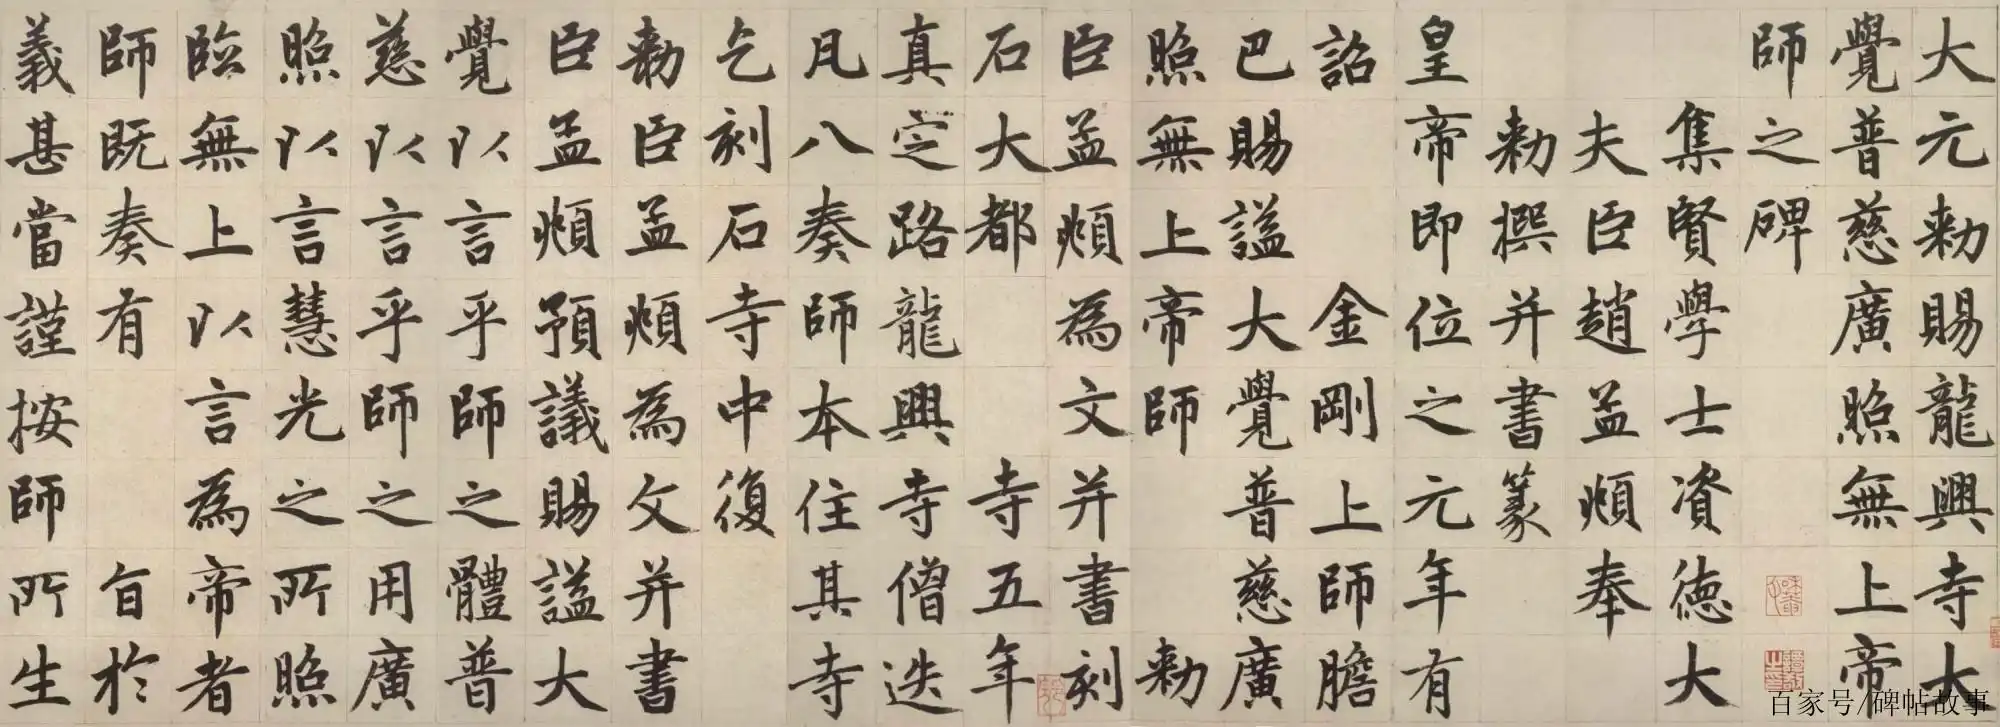 大元敕賜龍興寺大
覺普慈廣照無上帝
師之碑
集賢學士資德大
夫臣趙孟頫奉
敕撰并書篆
皇帝即位之元年有
詔金剛上師膽
巴賜謚大覺普慈廣
照無上帝師敕
臣孟頫為文并書刻
石大都寺五年
真定路龍興寺僧迭
凡八奏師本住其寺
乞刻石寺中復
敕臣孟頫為文并書
臣孟頫預議賜謚大
覺以言乎師之體普
慈以言乎師之用廣
照以言慧光之所照
臨無上以言為帝者
師既奏有旨於
義甚當謹按師所生
百家号/碑帖故事